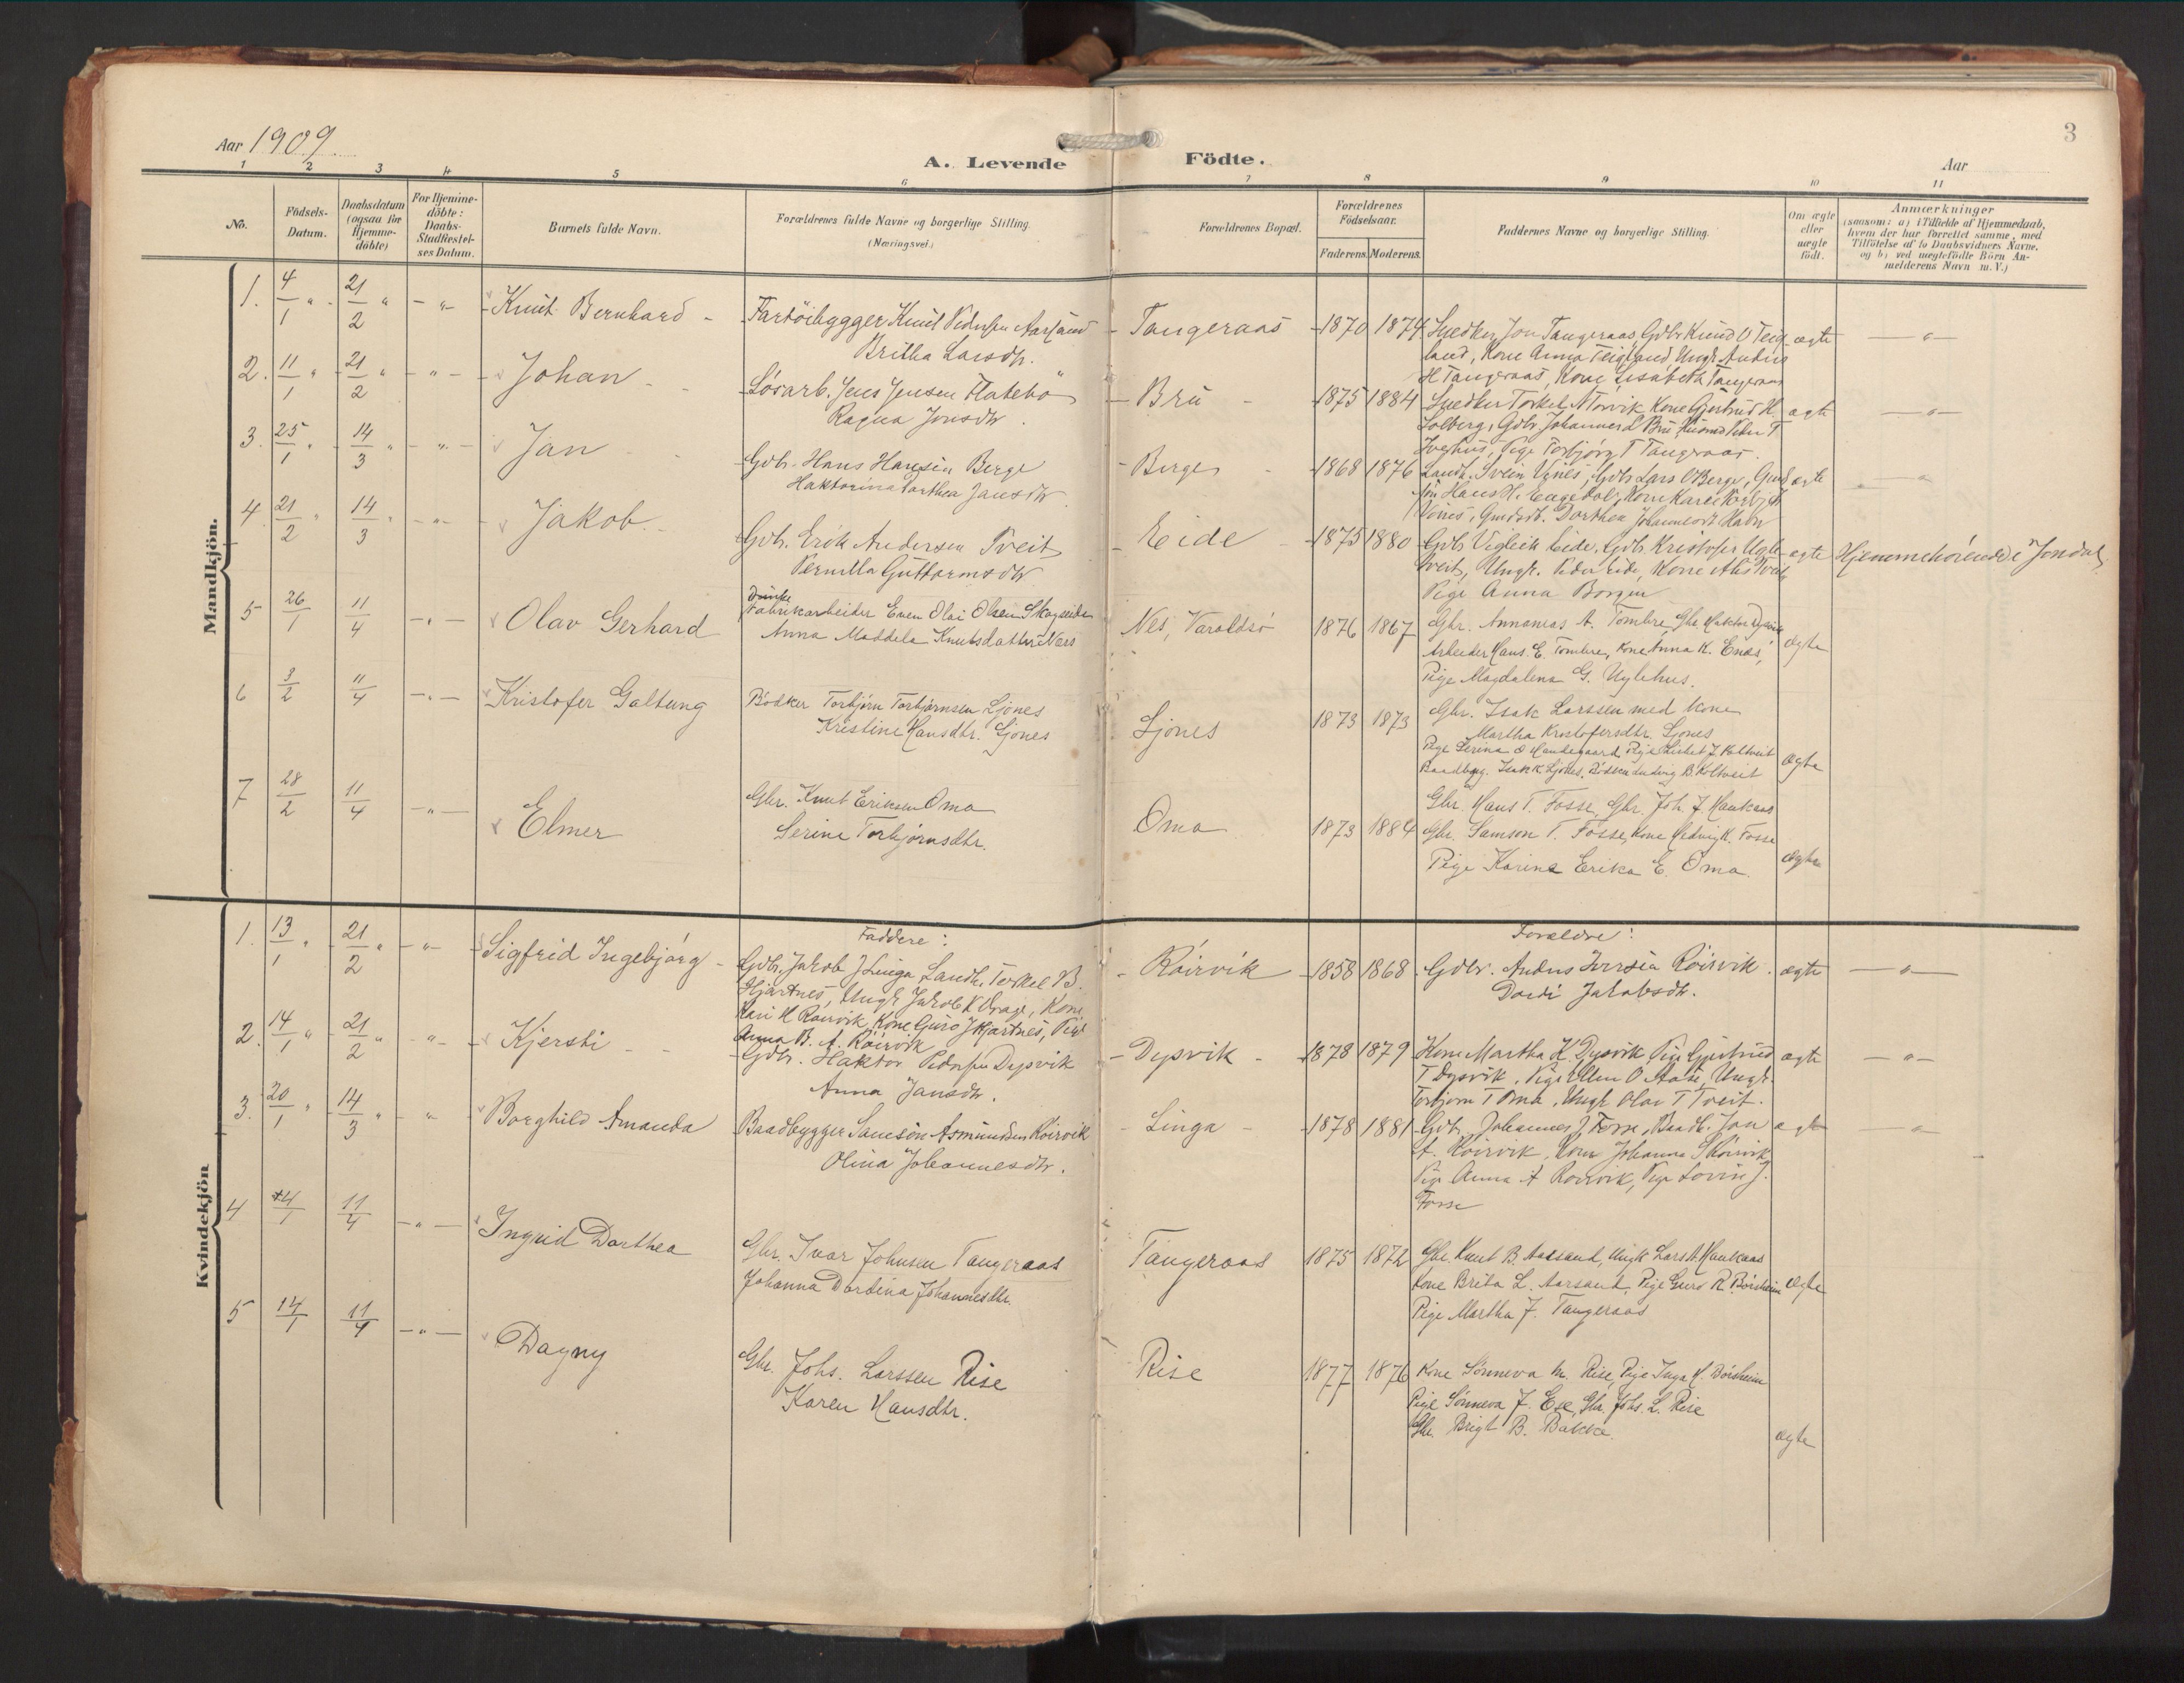 3
Aar 1909
A. Levende Födte.
Aar
1 2 3 4 5 6 7 8 9 10 11
No.
Födsels-Datum.
Daabsdatum (ogsaa for Hjemme-döbte)
For Hjemme-döbte: Daabs-Stadfæstel-ses Datum.
Barnets fulde Navn.
Forældrenes fulde Navne og borgerlige Stilling.
(Næringsvei.)
Forældrenes Bopæl.
Forældrenes Födselsaar.
Faderens. Moderens.
Faddernes Navne og borgerlige Stilling.
Om ægte eller uægte födt.
Anmærkninger
(saasom: a) i Tilfælde af Hjemmedaab,
hvem der har forrettet samme, med
Tilföielse af to Daabsvidners Navne,
og b) ved uægtefödte Börn An-
melderens Navn m. V.)
Mandkjön.
1. 4/1 " 21/2 " - " - Knut Bernhard -
Fartöibygger Knut Pedersen Aarsand
Britha Larsdtr.
Tangeraas 1870 1874
Snedker Jon Tangeraas Gdbr Knud O Teig
land, Kone Anna Teigland Ungk Anders
H Tangeraas, Kone Lisabeth Tangeraas
ægte - " -
2. 11/1 " 21/2 " - " - Johan
Lösarb. Jens Jensen Flatebö
Ragna Jonsdtr.
Bru 1875 1884
Snedker Torkel A Torvik Kone Gjertrud H.
Solberg, Gdbr Johannes L Bru
Pige Torbjörg T Tangeraas.
ægte - " -
3. 25/1 " 14/3 " - " - Jan
Gdbr. Hans Hansen Berge
Haktorina Darthea Jansdtr
Berge 1868 1876
Landh. Svein Vines, Gdbr Lars O Berge, Gmd
Hans H. Engedal, Kone Kari
Vines, Gmdsdt. Dorthea Johannesdt
ægte
4. 21/2 " 14/3 " - " - Jakob
Gdbr. Erik Andersen Tveit
Pernilla Guttormsdtr
Eide 1875 1880
Gdbr Vigleik Eide, Gdbr Kristofer Ugle-
tveit, Ungk. Peder Eide, Kone
Pige Anna Borgen
ægte Hjemmehörende i Jondal
5 26/1 11/4 - " - Olav Gerhard
Fabrikarbeider Even Olai Olsen Skogseide
Anna Maddela Knutsdatter Næs
Nes, Varaldsö 1876 1867
Gbr. Annanias A. Tombre, Gbr Haktor Dysvik
Arbeider Hans E. Tombre, Kone Anna K. Enæs,
Pige Magdalena G. Uglehus.
ægte
6 3/2 11/4 - " - Kristofer Galtung
Bödker Torbjörn Torbjörnsen Ljones
Kristine Hansdtr. Ljones
Ljones 1873 1873
Gbr. Isak Larssen med kone
Martha Kristofersdtr. Ljones
Pige Serina O Handegaard Pige Lisbet J Koltveit
Baadbyg. Isak K Ljones. Bödker Ludvig B. Koltveit
ægte
7 28/2 11/4 - " - Elmer
Gbr. Knut Eriksen Oma
Serine Torbjörnsdtr.
Oma 1873 1884
Gbr Hans T. Fosse, Gbr. Joh. J. Haukaas
Gbr. Samson T. Fosse, Kone Hedvig K. Fosse
Pige Karina Erika E. Oma.
ægte
Kvindekjön
Faddere:
Forældre:
1. 13/1 " 21/2 " - " - Sigfrid Ingebjörg
Gdbr. Jakob J Linga Landh. Terkel B.
Hjartnes, Ungk Jakob K Drage, Kone
Kari H Röirvik, Kone Guro J Hjartnes, Pige
Anna B. A. Röirvik
Röirvik 1858 1868
Gdbr. Anders Iversen Röirvik.
Dordi Jakobsdtr.
ægte - " -
2. 14/1 " 21/2 " - " - Kjersti
Gdbr. Haktor Pedersen Dysvik
Anna Jansdtr.
Dysvik 1878 1879
Kone Martha K. Dysvik Pige Gjertrud
T Dysvik, Pige Ellen O Aase, Ungk.
Torbjörn T Oma, Ungk Olav T Tveit.
ægte - " -
3. 20/1 " 14/3 " - " - Borghild Amanda
Baadbygger Samson Asmundsen Röirvik
Olina Johannesdtr.
Linga 1878 1881
Gdb. Johannes J Fosse, Baadb. Jon
A. Röirvik, Kone Johanna S Röirvik,
Pige Anna A Röirvik, Pige Lovise J.
Fosse
ægte - " -
4 24/1 11/4 - " - Ingrid Dorthea
Gbr. Ivar Johnsen Tangeraas
Johanna Dortina Johannesdtr.
Tangeraas 1875 1872
Gbr. Knut B. Aarsand, Ungk Lars A Haukaas
Kone Brita L. Aarsand, Pige Guro R. Börsheim
Pige Martha J. Tangeraas
ægte
5 14/1 11/4 - " - Dagny
Gbr. Johs. Larssen Rise
Karen Hansdtr.
Rise 1877 1876
Kone Sönneva M. Rise, Pige Inga H. Börsheim
Pige Sönneva J. Ese, Gbr. Johs. L. Rise
Gbr. Brigt B. Bakka.
ægte